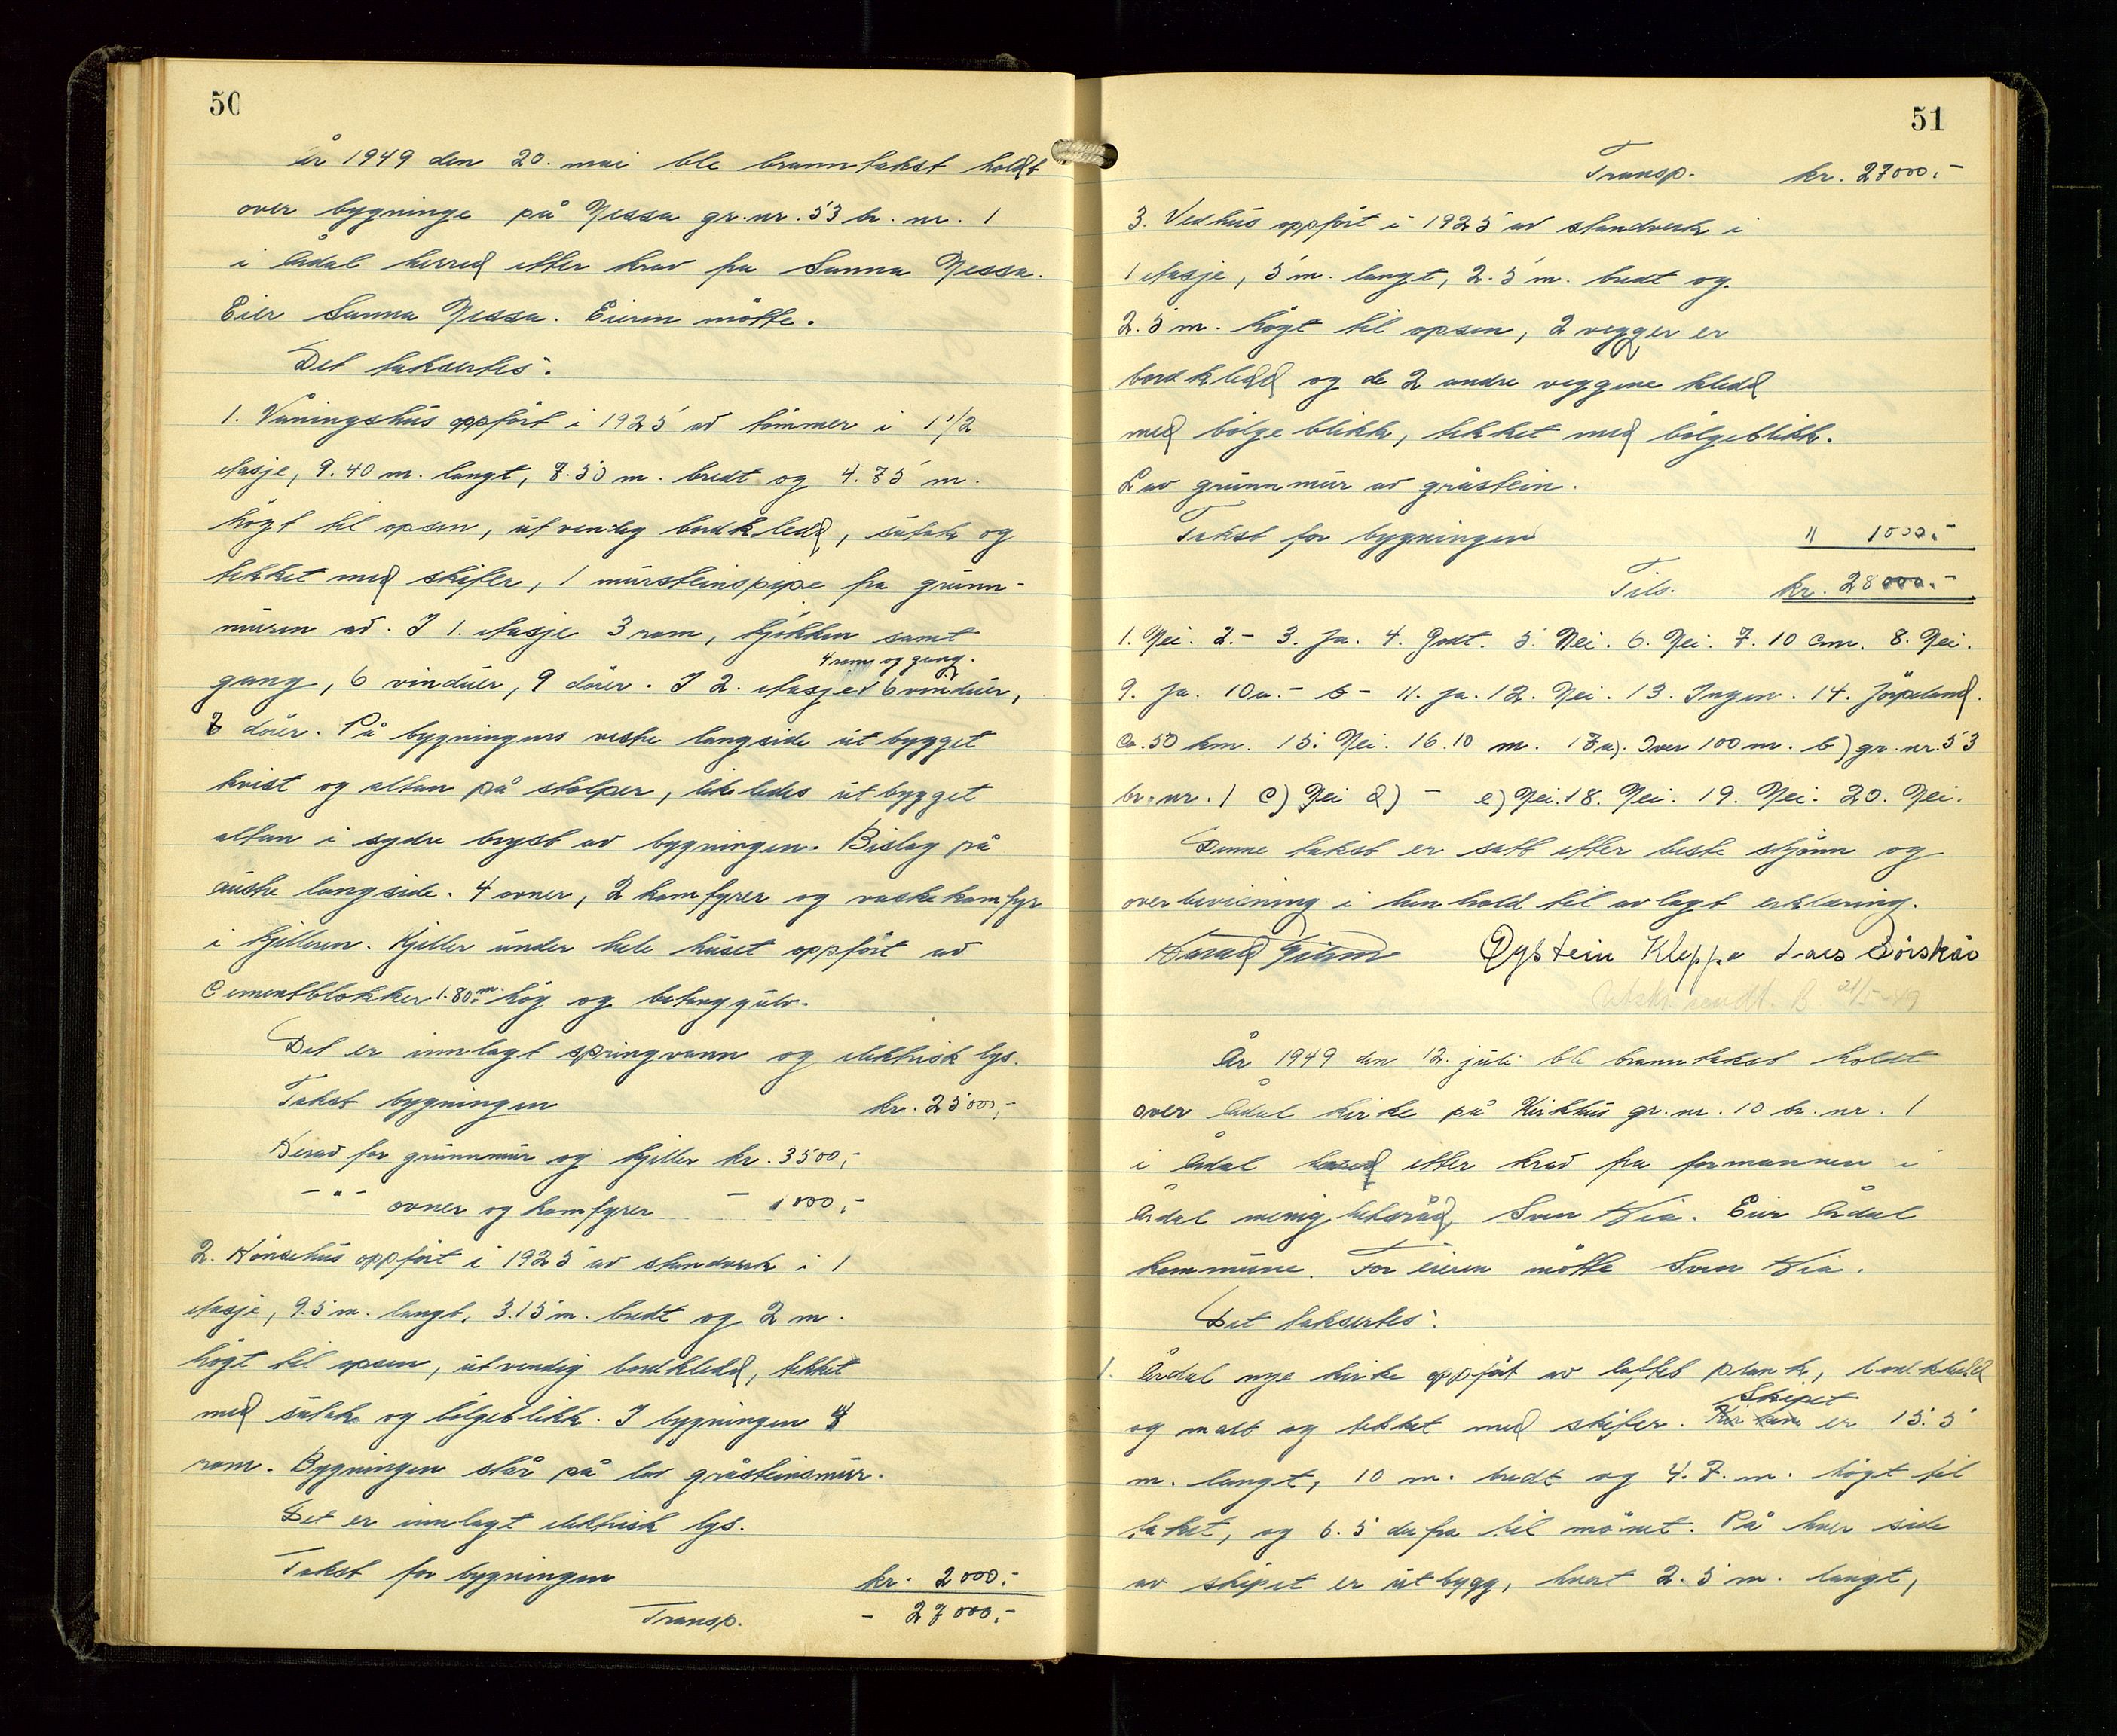 50
År 1949 den 20. mai ble branntakst holdt
over bygninge på Nessa gr.nr. 53 br. nr. 1
i Årdal herred etter krav fra Sanna Nessa.
Eier Sanna Nessa. Eieren møtte.
Det taksertes:
1. Våningshus oppført i 1925 av tømmer i 1 1/2
etasje, 9.40 m. langt, 7.50 m. bredt og 4.75 m.
høgt til opsen, utvendig bordkledd, sutak og
tekket med skifer, 1 mursteinspipe fra grunn-
muren av. I 1. etasje 3 rom, kjøkken samt
4 rom og gang.
gang, 6 vinduer, 9 dører. I 2. etasje 6 vinduer,
7 dører. På bygningens vestre langside utbygget
kvist og altan på stolper, likeledes utbygget
altan i sydre bryst av bygningen. Bislag på
austre langside. 4 ovner, 2 komfyrer og vaskekomfyr
i kjelleren. Kjeller under hele huset oppført av
Cementblokker 1.80 m. høg og betonggulv.
Det er innlagt springvann og elektrisk lys.
Takst bygningen kr. 25000,-
Herav for grunnmur og kjeller kr. 3500,-
-"- ovner og komfyrer - 1000,-
2. Hønsehus oppført i 1925 av standverk i 1
etasje, 9.5 m. langt, 3.15 m. bredt og 2 m.
høgt til opsen, utvendig bordkledd, tekket
med sutak og bølgeblikk. I bygningen 4
rom. Bygningen står på lav gråsteinsmur.
Det er innlagt elektrisk lys.
Takst for bygningen kr. 2000.-
Transp. - 27000.-
51
Transp. kr. 27000.-
3. Vedhus oppført i 1925 av standverk i
1 etasje, 5 m. langt, 2.5 m. bredt og
2.5 m. høgt til opsen, 2 vegger er
bordkledd og de 2 andre veggene kledd
med bølgeblikk, tekket med bølgeblikk.
Lav grunnmur av gråstein.
Takst for bygningen " 1000.-
Tils. kr. 28000.-
1. Nei. 2.- 3. Ja. 4. Godt. 5. Nei. 6. Nei. 7. 10 cm. 8. Nei.
9. Ja. 10a.- b- 11. Ja. 12. Nei. 13. Ingen. 14. Jørpeland.
Ca. 50 km. 15. Nei. 16. 10 m. 17a). Over 100 m. b) gr.nr. 53
br.nr. 1 c) Nei d) - e) Nei. 18. Nei. 19. Nei. 20. Nei.
Denne takst er satt etter beste skjønn og
overbevisning i henhold til avlagt erklæring.
Øystein Kleppa Lars Sørskår
21/5-49
År 1949 den 12. juli ble branntakst holdt
over Årdal kirke på Kirkhus gr.nr. 10 br.nr. 1
i Årdal herred etter krav fra formannen i
Årdal menighetsråd, Sven Hia. Eier Årdal
kommune. For eieren møtte Sven Hia.
Det taksertes:
1. Årdal nye kirke oppført av laftet planke, bordkledd
Skipet
og malt og tekket med skifer. Kirken er 15.5
m. langt, 10 m. bredt og 4.7. m. høgt til
taket, og 6.5 derfra til mønet. På hver side
av skipet er utbygg, hvert 2.5 m. langt,